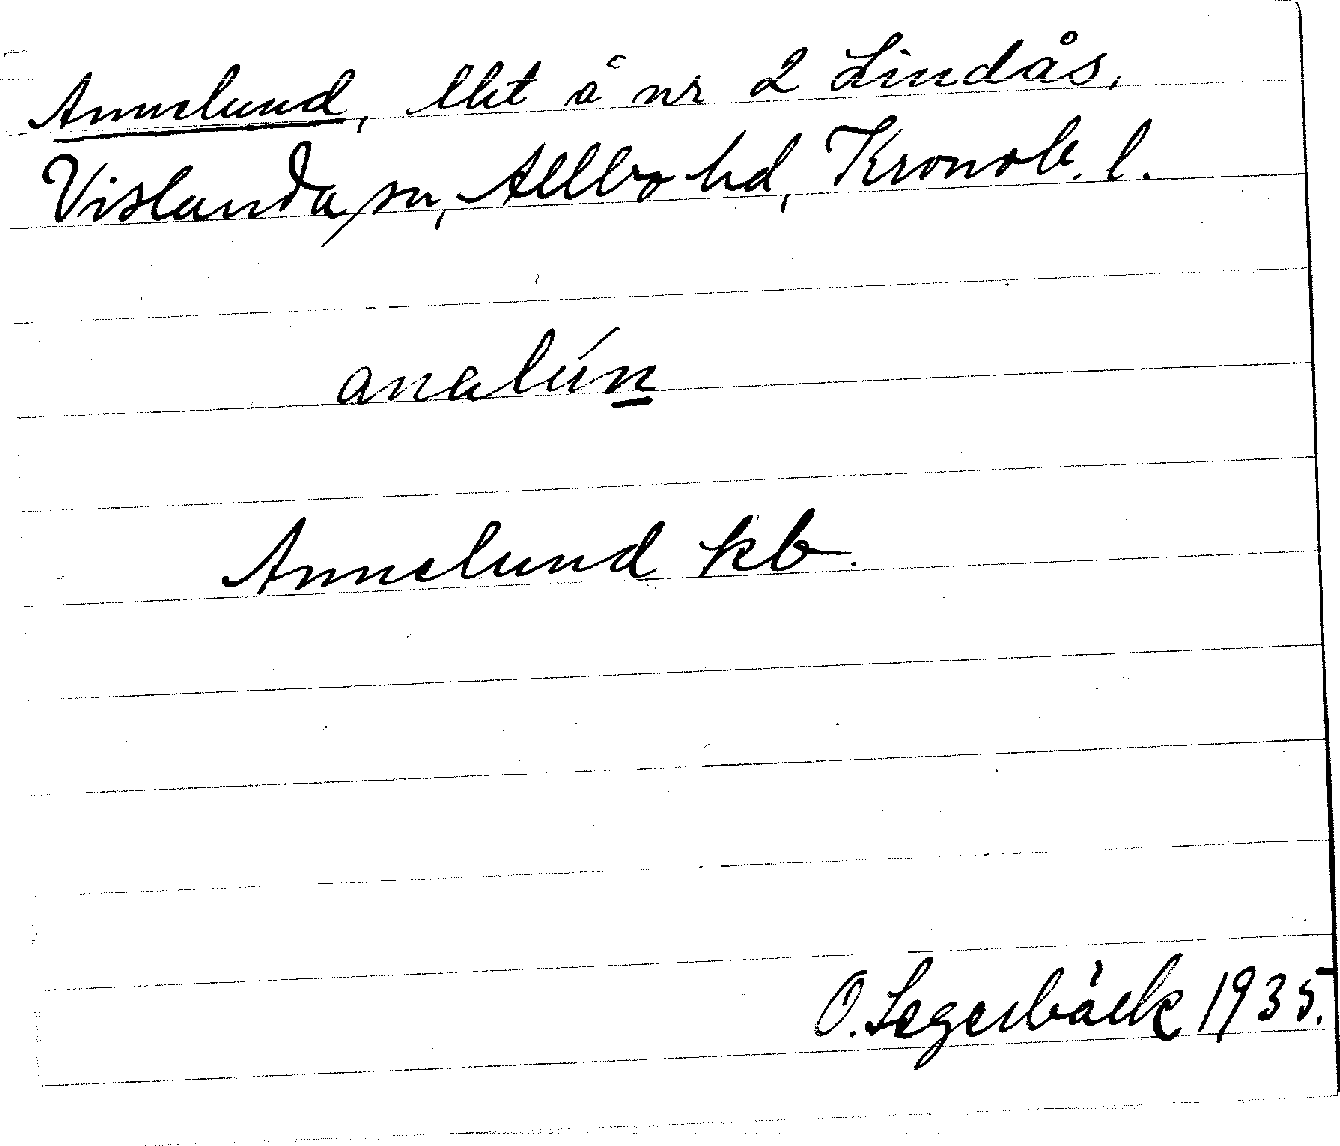 Annelund, lht å nr 2 Lindås,
Vislanda sn, Allbo hd, Kronob. l.
analún
Annelund kb.
O. Segerbäck 1935.